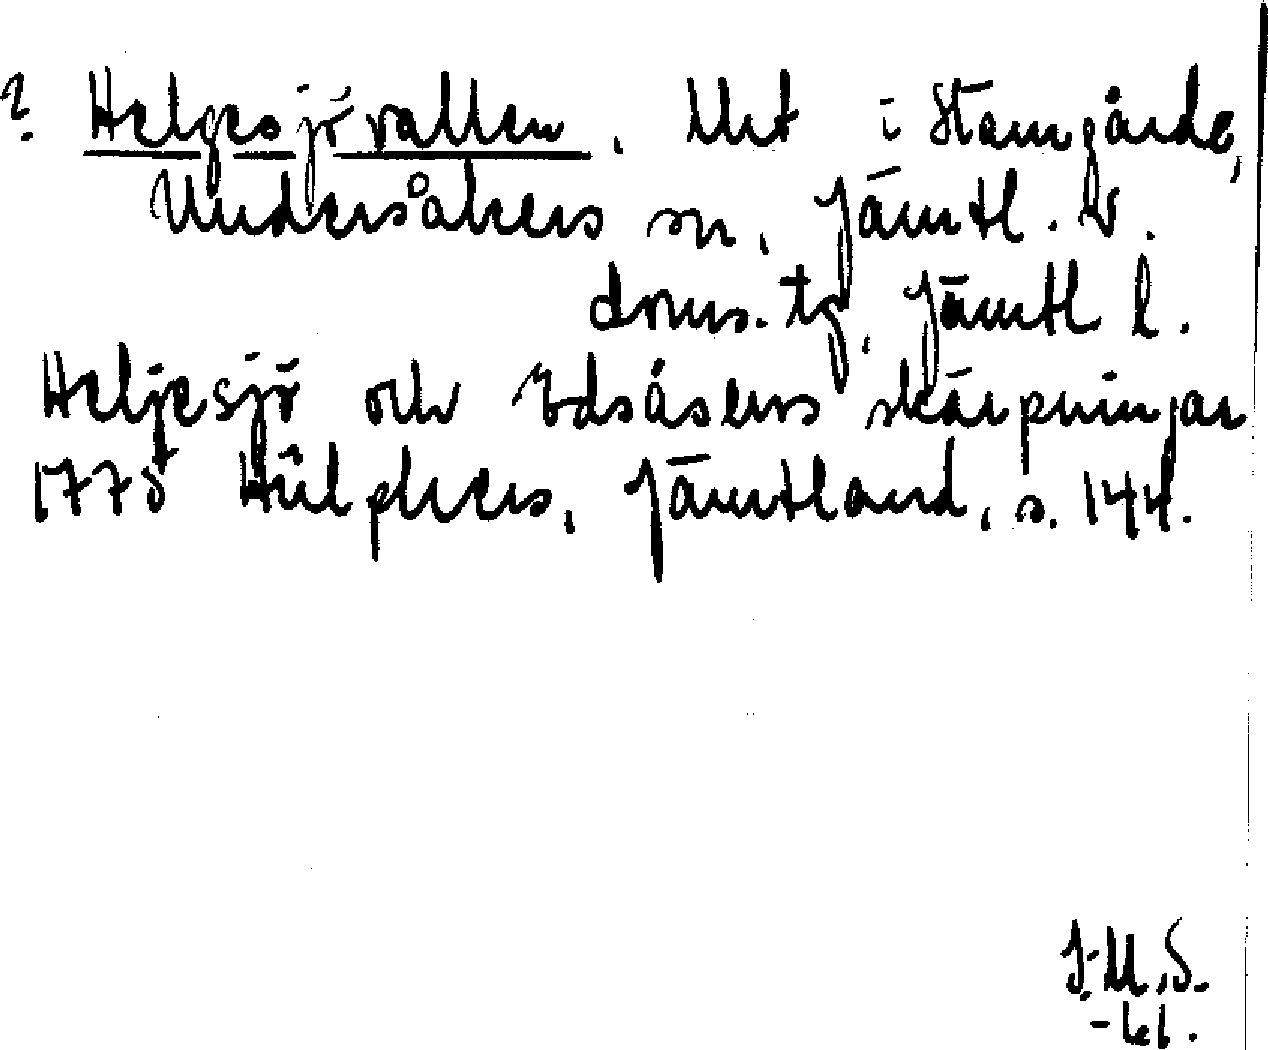 ? Helgesjövallen, Uet i Stamgärde,
Undersåkers sn, Jämtl. v.
doms. tg, Jämtl l.
Heljesjö och Edsåsens skärpningar
1775 Hülphers, Jämtland, s. 144.
J.M.S.